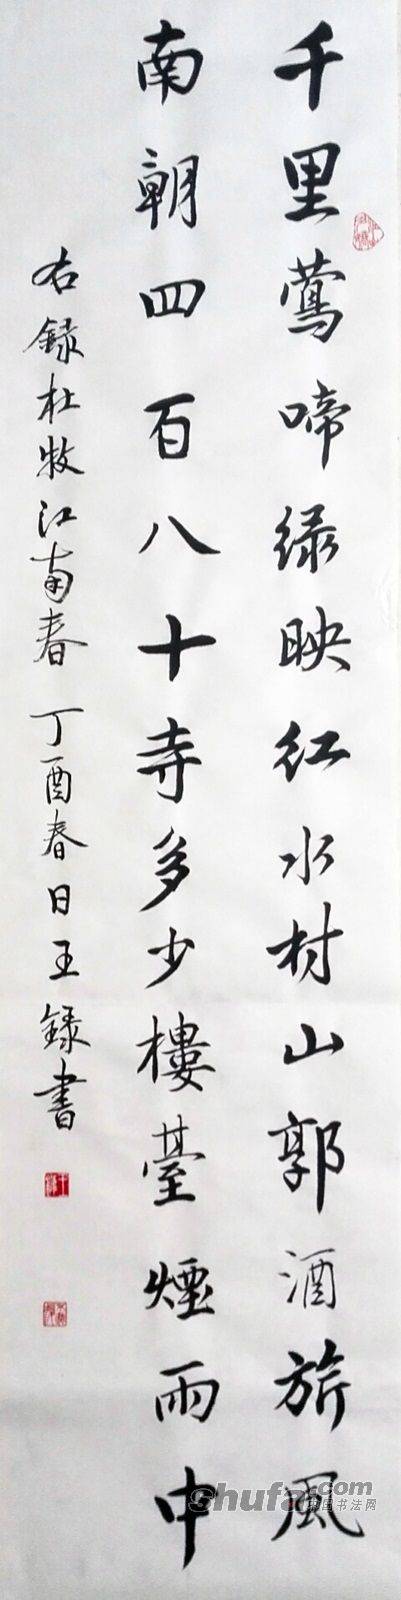 千里莺啼绿映红水村山郭酒旂風
南朝四百八十寺多少樓臺煙雨中
右録杜牧江南春丁酉春日王録書
shufa.com
中国书法网